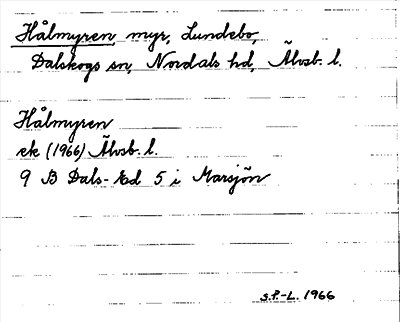 Hålmyren, myr, Lundebo,
Dalskogs sn, Nordals hd, Älvsb. l.
Hålmyren
ek (1966) Älvsb. l.
9 B Dals-Ed 5 i Marsjön
S.P.-L. 1966